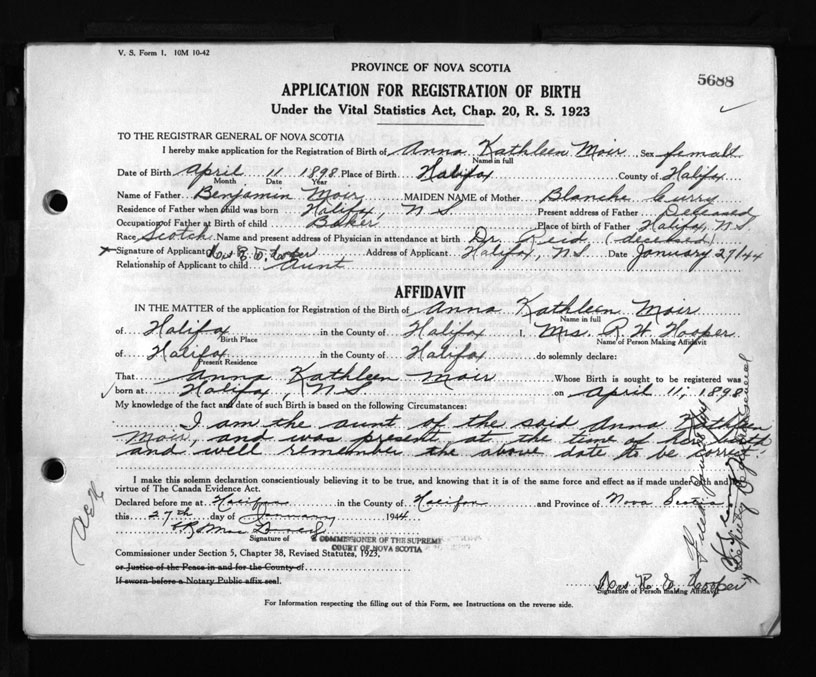 V. S. Form 1. 10M 10-42
PROVINCE OF NOVA SCOTIA
5688
APPLICATION FOR REGISTRATION OF BIRTH
Under the Vital Statistics Act, Chap. 20, R. S. 1923
TO THE REGISTRAR GENERAL OF NOVA SCOTIA
I hereby make application for the Registration of Birth of Anna Kathleen Moir Sex female
Name in full
Date of Birth April 11 1898 Place of Birth Halifax County of Halifax
Month Date Year
Name of Father Benjamin Moir MAIDEN NAME of Mother Blanche Curry
Residence of Father when child was born Halifax, N S Present address of Father Deceased
Occupation of Father at Birth of child Baker Place of birth of Father Halifax, N.S
Race Scotch Name and present address of Physician in attendance at birth Dr. Reid, (deceased)
Signature of Applicant Address of Applicant Halifax, N.S. Date January 27/44
Relationship of Applicant to child Aunt
AFFIDAVIT
IN THE MATTER of the application for Registration of the Birth of Anna Kathleen Moir
Name in full
of Halifax in the County of Halifax I, Mrs. R. H. Hooper
Birth Place Name of Person Making Affidavit
of Halifax in the County of Halifax do solemnly declare:
Present Residence
That Anna Kathleen Moir Whose Birth is sought to be registered was
born at Halifax, N S on April 11, 1898
My knowledge of the fact and date of such Birth is based on the following Circumstances:
I am the aunt of the said Anna Kathleen
Moir, and was present at the time of her birth
and well remember the above date to be correct.
I make this solemn declaration conscientiously believing it to be true, and knowing that it is of the same force and effect as if made under oath and
virtue of The Canada Evidence Act.
Declared before me at Halifax in the County of Halifax and Province of Nova Scotia
this 27th day of January 1944
Signature of
A COMMISSIONER OF THE SUPREME
COURT OF NOVA SCOTIA
Commissioner under Section 5, Chapter 38, Revised Statutes, 1923,
or Justice of the Peace in and for the County of
If sworn before a Notary Public affix seal.
Signature of Person making Affidavit
For Information respecting the filling out of this Form, see Instructions on the reverse side.
Deputy Registrar General